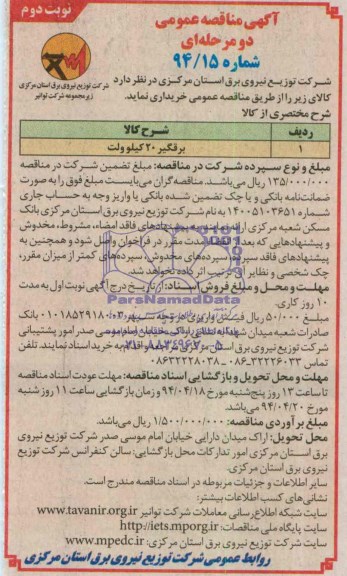 نوبت دوم
آگهی مناقصه عمومی
دو مرحله‌ای
شماره ۹۴/۱۵
شرکت توزیع نیروی برق استان مرکزی
زیرمجموعه شرکت توانیر
شرکت توزیع نیروی برق استان مرکزی در نظر دارد
کالای زیر را از طریق مناقصه عمومی خریداری نماید.
شرح مختصری از کالا
ردیف شرح کالا
۱ برقگیر ۲۰ کیلو ولت
مبلغ و نوع سپرده شرکت در مناقصه: مبلغ تضمین شرکت در مناقصه
۱۳۵/۰۰۰/۰۰۰ ریال می‌باشد. مناقصه‌گران می‌بایست مبلغ فوق را به صورت
ضمانت‌نامه بانکی و یا چک تضمین شده بانکی یا واریز وجه به حساب جاری
شماره ۱۴۰۰۵۱۰۳۶۵۱ به نام شرکت توزیع نیروی برق استان مرکزی بانک
مسکن شعبه مرکزی اراک به پیشنهادهای فاقد امضاء، مشروط، مخدوش
و پیشنهادهایی که بعد از انقضا مدت مقرر در فراخوان واصل شود و همچنین به
پیشنهادهای فاقد سپرده، سپرده‌های مخدوش، سپرده‌های کمتر از میزان مقرر،
چک شخصی و نظایر آن ترتیب اثر داده نخواهد شد.
مهلت و محل و مبلغ فروش اسناد: از تاریخ درج آگهی نوبت اول به مدت
۱۰ روز کاری.
مبلغ ۵۰/۰۰۰ ریال فیش واریزی در وجه سپهر ۰۱۰۱۸۵۲۹۱۸۰۰۳ بانک
صادرات شعبه میدان شهدا به نشانی اراک، خیابان امام موسی صدر امور پشتیبانی
شرکت توزیع نیروی برق استان مرکزی مراجعه و اقدام به خرید اسناد نمایند. تلفن
تماس ۳۲۲۲۶۰۳۳_۰۸۶ ۰۸۶۳۲۲۲۸۰۳۸
مهلت و محل تحویل و بازگشایی اسناد مناقصه: مهلت عودت اسناد مناقصه
تا ساعت ۱۳ روز پنج‌شنبه مورخ ۹۴/۰۴/۱۸ و زمان بازگشایی ساعت ۱۱ روز شنبه
مورخ ۹۴/۰۴/۲۰ می‌باشد.
مبلغ برآوردی مناقصه: ۱/۵۰۰/۰۰۰/۰۰۰ ریال می‌باشد.
محل تحویل: اراک میدان دارایی خیابان امام موسی صدر شرکت توزیع نیروی
برق استان مرکزی امور تدارکات محل بازگشایی: سالن کنفرانس شرکت توزیع
نیروی برق استان مرکزی.
سایر اطلاعات و جزئیات مربوطه در اسناد مناقصه مندرج است.
نشانی‌های کسب اطلاعات بیشتر:
سایت شبکه اطلاع‌رسانی معاملات شرکت توانیر www.tavanir.org.ir
سایت پایگاه ملی مناقصات: http://iets.mporg.ir
سایت شرکت توزیع نیروی برق استان مرکزی: www.mpedc.ir
روابط عمومی شرکت توزیع نیروی برق استان مرکزی
ParsNamadData